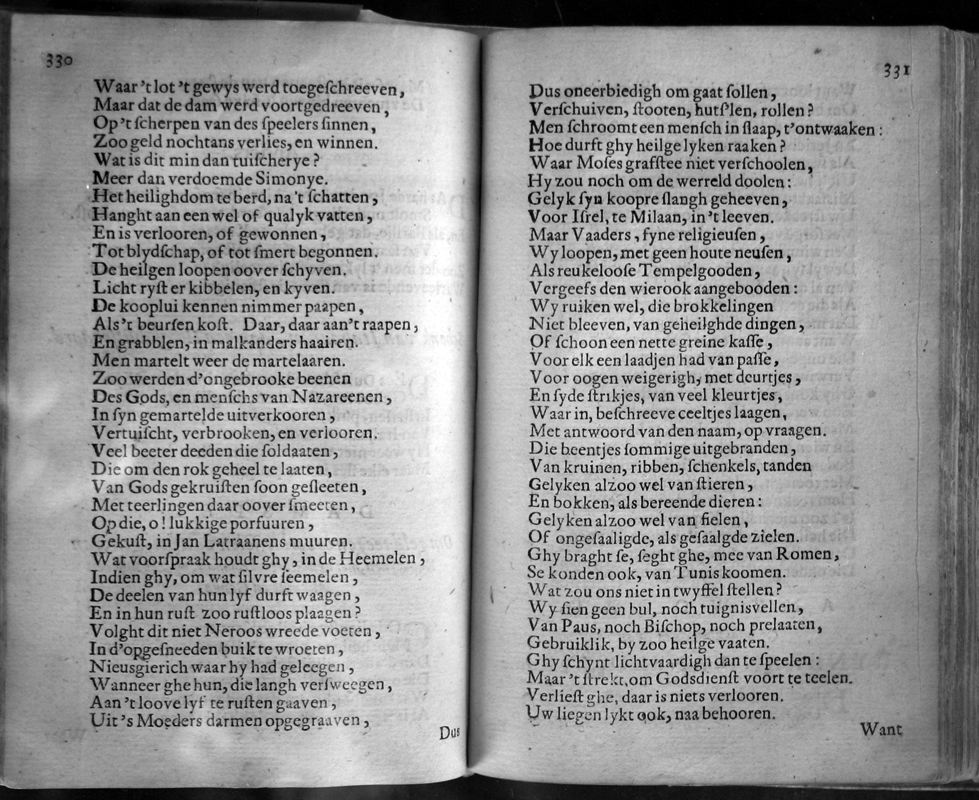 330
Waar 't lot 't gewys werd toegeſchreeven,
Maar dat de dam werd voortgedreeven,
Op 't ſcherpen van des ſpeelers ſinnen,
Zoo geld nochtans verlies, en winnen.
Wat is dit min dan tuiſcherye?
Meer dan verdoemde Simonye.
Het heilighdom te berd, na 't ſchatten,
Hanght aan een wel of qualyk vatten,
En is verlooren, of gewonnen,
Tot blydſchap, of tot ſmert begonnen.
De heilgen loopen oover ſchyven.
Licht ryſt er kibbelen, en kyven.
De kooplui kennen nimmer paapen,
Als 't beurſen koſt. Daar, daar aan 't raapen,
En grabblen, in malkanders haairen.
Men martelt weer de martelaaren.
Zoo werden d'ongebrooke beenen
Des Gods, en menſchs van Nazareenen,
In ſyn gemartelde uitverkooren,
Vertuiſcht, verbrooken, en verlooren.
Veel beeter deeden die ſoldaaten,
Die om den rok geheel te laaten,
Van Gods gekruiſten ſoon geſleeten,
Met teerlingen daar oover ſmeeten,
Op die, o! lukkige porfuuren,
Gekuſt, in Jan Latraanens muuren.
Wat voorſpraak houdt ghy, in de Heemelen,
Indien ghy, om wat ſilvre ſeemelen,
De deelen van hun lyf durft waagen,
En in hun ruſt zoo ruſtloos plaagen?
Volght dit niet Neroos wreede voeten,
In d'opgeſneeden buik te wroeten,
Nieusgierich waar hy had geleegen,
Wanneer ghe hun, die langh verſweegen,
Aan 't loove lyf te ruſten gaaven,
Uit 's Moeders darmen opgegraaven,
Dus
331
Dus oneerbiedigh om gaat ſollen,
Verſchuiven, ſtooten, hutſ'len, rollen?
Men ſchroomt een menſch in ſlaap, t'ontwaaken:
Hoe durft ghy heilge lyken raaken?
Waar Moſes grafſtee niet verſchoolen,
Hy zou noch om de werreld doolen:
Gelyk ſyn koopre ſlangh geheeven,
Voor Iſrel, te Milaan, in 't leeven.
Maar Vaaders, fyne religieuſen,
Wy loopen, met geen houte neuſen,
Als reukelooſe Tempelgooden,
Vergeefs den wierook aangebooden:
Wy ruiken wel, die brokkelingen
Niet bleeven, van geheilghde dingen,
Of ſchoon een nette greine kaſſe,
Voor elk een laadjen had van paſſe,
Voor oogen weigerigh, met deurtjes,
En ſyde ſtrikjes, van veel kleurtjes,
Waar in, beſchreeve ceeltjes laagen,
Met antwoord van den naam, op vraagen.
Die beentjes ſommige uitgebranden,
Van kruinen, ribben, ſchenkels, tanden
Gelyken alzoo wel van ſtieren,
En bokken, als bereende dieren:
Gelyken alzoo wel van fielen,
Of ongeſaaligde, als geſaalgde zielen.
Ghy braght ſe, ſeght ghe, mee van Romen,
Se konden ook, van Tunis koomen.
Wat zou ons niet in twyffel ſtellen?
Wy ſien geen bul, noch tuignisvellen,
Van Paus, noch Biſchop, noch prelaaten,
Gebruiklik, by zoo heilge vaaten.
Ghy ſchynt lichtvaardigh dan te ſpeelen:
Maar 't ſtrekt, om Godsdienſt voort te teelen.
Verlieſt ghe, daar is niets verlooren.
Uw liegen lykt ook, naa behooren.
Want